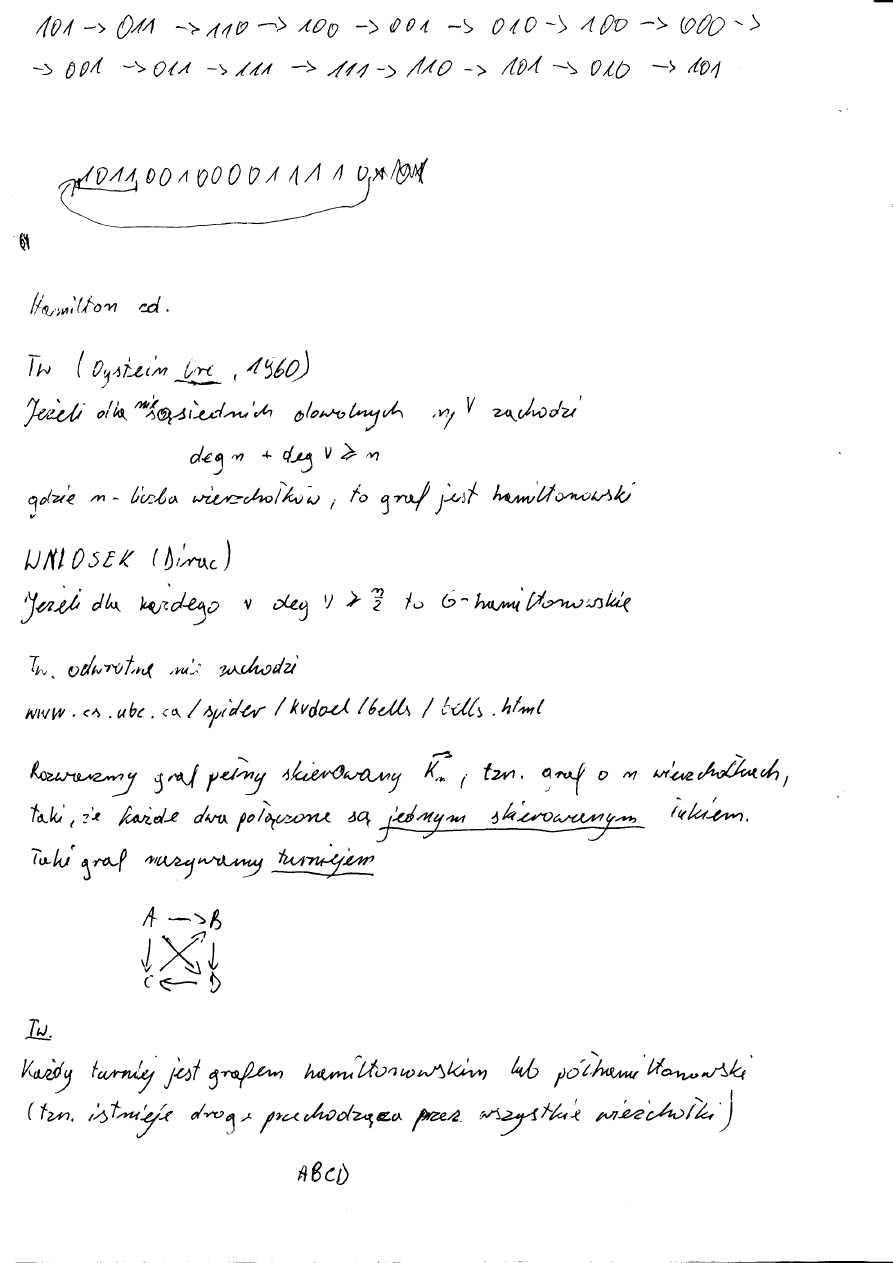 101 -> 011 -> 110 -> 100 -> 001 -> 010 -> 100 -> 000 ->
-> 001 -> 011 -> 111 -> 111 -> 110 -> 101 -> 010 -> 101
1011001000011110
Hamilton cd.
Tw (Oystein Ore, 1960)
Jeżeli dla niesąsiednich dowolnych u, v zachodzi
deg u + deg v ≥ n
gdzie n - liczba wierzchołków, to graf jest hamiltonowski
WNIOSEK (Dirac)
Jeżeli dla każdego v deg v ≥ n/2 to G-hamiltonowskie
Tw. odwrotne nie zachodzi
www.cs.ubc.ca/spider/kvdoel/bells/bells.html
Rozważmy graf pełny skierowany K⃗n, tzn. graf o n wierzchołkach,
taki, że każde dwa połączone są jednym skierowanym łukiem.
Taki graf nazywamy turniejem
A -> B
C <- D
Tw.
Każdy turniej jest grafem hamiltonowskim lub półhamiltonowski
(tzn. istnieje droga przechodząca przez wszystkie wieżchołki)
ABCD